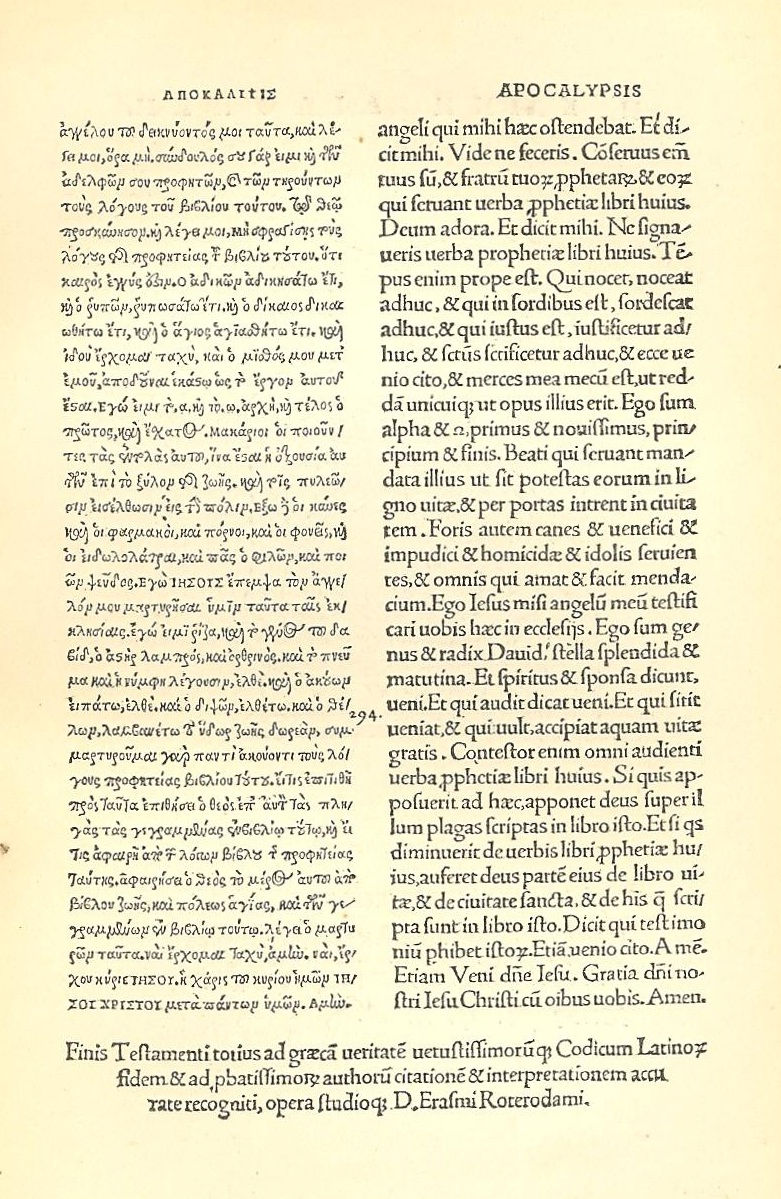 ΑΠΟΚΑΛΙΤΙΣ
ἀγγέλου τοῦ δεικνύοντός μοι ταῦτα, καὶ λέ-
γει μοι, ὅρα μὴ, σύνδουλός σου γάρ εἰμι καὶ τῶν
ἀδελφῶν σου προφητῶν, καὶ τῶν τηρούντων
τοὺς λόγους τοῦ βιβλίου τούτου. τῷ θεῷ
προσκύνησον. καὶ λέγει μοι, μὴ σφραγίσῃς τοὺς
λόγους τῆς προφητείας τοῦ βιβλίου τούτου. ὅτι
καιρὸς ἐγγύς ἐστιν. Ο ἀδικῶν ἀδικησάτω ἔτι,
καὶ ὁ ῥυπῶν, ῥυπωσάτω ἔτι, καὶ ὁ δίκαιος δικαι
ωθήτω ἔτι, καὶ ὁ ἅγιος ἁγιασθήτω ἔτι. καὶ
ἰδοὺ ἔρχομαι ταχὺ, καὶ ὁ μισθός μου μετ
ἐμοῦ, ἀποδοῦναι ἑκάστῳ ὡς τὸ ἔργον αὐτοῦ
ἔσται. Εγώ εἰμι τὸ α, καὶ τὸ ω, ἀρχὴ, καὶ τέλος ὁ
πρῶτος, καὶ ἔσχατος. Μακάριοι οἱ ποιοῦν/
τες τὰς ἐντολὰς αὐτοῦ, ἵνα ἔσται ἡ ἐξουσία αὐ
τῶν ἐπὶ τὸ ξύλον τῆς ζωῆς. καὶ τοῖς πυλεῶ/
σιν εἰσέλθωσιν εἰς τὴν πόλιν, Εξω δὲ οἱ κύνες
καὶ οἱ φαρμακοὶ, καὶ πόρνοι, καὶ οἱ φονεῖς, καὶ
οἱ εἰδωλολάτραι, καὶ πᾶς ὁ φιλῶν, καὶ ποι
ῶν ψεῦδος. Εγὼ ΙΗΣΟΥΣ ἔπεμψα τὸν ἄγγε/
λόν μου μαρτυρῆσαι ὑμῖν ταῦτα ταῖς ἐκ/
κλησίαις. ἐγώ εἰμι ῥίζα, καὶ τὸ γένος τοῦ δα
βίδ, ὁ ἀστὴρ λαμπρὸς, καὶ ὀρθρινὸς. καὶ τὸ πνεῦ
μα καὶ ἡ νύμφη λέγουσιν, ἐλθέ. καὶ ὁ ἀκούων
εἰπάτω, ἐλθέ. καὶ ὁ διψῶν, ἐλθέτω. καὶ ὁ θέ/
λων, λαμβανέτω τὸ ὕδωρ ζωῆς δωρεὰν, συμ
μαρτυροῦμαι γὰρ παντὶ ἀκούοντι τοὺς λό/
γους προφητείας βιβλίου τούτου. εἴ τις ἐπιτιθῇ
πρὸς ταῦτα ἐπιθήσει ὁ θεὸς ἐπ' αὐτὸν τὰς πλη/
γὰς τὰς γεγραμμένας ἐν βιβλίῳ τούτῳ, καὶ εἴ
τις ἀφαιρῇ ἀπὸ τῶν λόγων βίβλου τῆς προφητείας
ταύτης. ἀφαιρήσει ὁ θεὸς τὸ μέρος αὐτοῦ ἀπὸ
βίβλου ζωῆς, καὶ πόλεως ἁγίας, καὶ τῶν γε/
γραμμένων ἐν βιβλίῳ τούτῳ. λέγει ὁ μαρτυ
ρῶν ταῦτα. ναὶ ἔρχομαι ταχὺ, ἀμὴν. ναὶ, ἔρ/
χου κύριε ΙΗΣΟΥ. ἡ χάρις τοῦ κυρίου ἡμῶν ΙΗ/
ΣΟΥ ΧΡΙΣΤΟΥ μετὰ πάντων ὑμῶν. Αμὴν.
294.
APOCALYPSIS
angeli qui mihi hæc ostendebat. Et di-
cit mihi. Vide ne feceris. Cõseruus em̃
tuus sũ, & fratrũ tuoꝝ ꝓphetaꝝ, & eoꝝ
qui seruant uerba ꝓphetiæ libri huius.
Deum adora. Et dicit mihi. Ne signa-
ueris uerba prophetiæ libri huius. Tẽ-
pus enim prope est. Qui nocet, noceat
adhuc, & qui in sordibus est, sordescat
adhuc, & qui iustus est, iustificetur ad/
huc, & sctũs sctificetur adhuc, & ecce ue
nio cito, & merces mea mecũ est, ut red-
dã unicuiqꝫ ut opus illius erit. Ego sum
alpha & ω, primus & nouissimus, prin/
cipium & finis. Beati qui seruant man-
data illius ut sit potestas eorum in li-
gno uitæ, & per portas intrent in ciuita
tem. Foris autem canes & uenefici &
impudici & homicidæ & idolis seruien
tes, & omnis qui amat & facit menda-
cium. Ego Iesus misi angelũ meũ testifi
cari uobis hæc in ecclesijs. Ego sum ge/
nus & radix Dauid, stella splendida &
matutina. Et spiritus & sponsa dicunt,
ueni. Et qui audit dicat ueni. Et qui sitit
ueniat, & qui uult, accipiat aquam uitæ
gratis. Contestor enim omni audienti
uerba ꝓphetiæ libri huius. Si quis ap-
posuerit ad hæc, apponet deus super il
lum plagas scriptas in libro isto. Et si qs
diminuerit de uerbis libri ꝓphetiæ hu/
ius, auferet deus partẽ eius de libro ui-
tæ, & de ciuitate sancta, & de his q̃ scri/
pta sunt in libro isto. Dicit qui testimo
niũ phibet istoꝝ. Etiã uenio cito. A mẽ.
Etiam Veni dñe Iesu. Gratia dñi no-
stri Iesu Christi cũ oibus uobis. Amen.
Finis Testamenti totius ad græcã ueritatẽ uetustissimorũqꝫ Codicum Latinoꝝ
fidem & ad ꝓbatissimoꝝ authorũ citationẽ & interpretationem accu
rate recogniti, opera studioqꝫ D. Erasmi Roterodami.